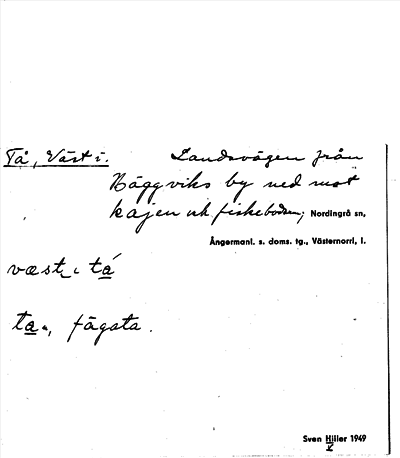 Tå, Väst i. Landsvägen från
Häggviks by ned mot
kajen och fiskeboden; Nordingrå sn,
Ångermanl. s. doms. tg., Västernorrl. l.
væst i tá
ta, fägata.
Sven Hiller 1949
X